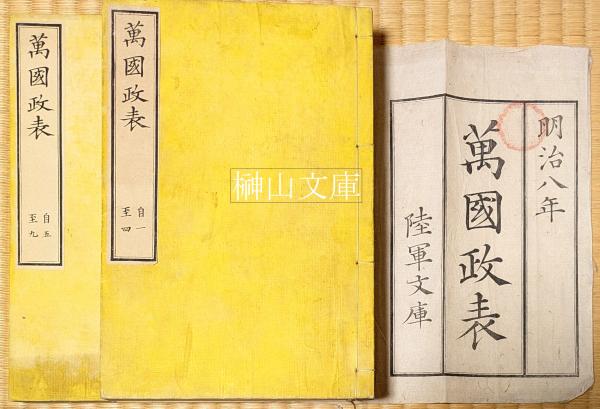 明治八年
萬國政表
陸軍文庫
萬國政表
自一
至四
萬國政表
自五
至九
榊山文庫